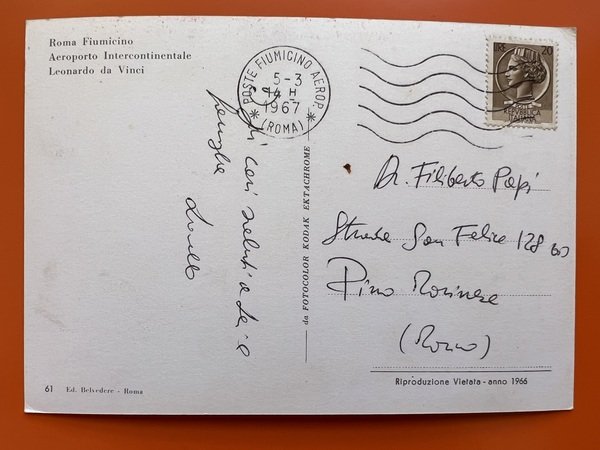 Roma Fiumicino
Aeroporto Intercontinentale
Leonardo da Vinci
POSTE FIUMICINO AEROP.
5-3
14 H
1967
(ROMA)
LIRE 20
REPVBBLICA
ITALIANA
cari saluti a Lei e
famiglia
da FOTOCOLOR KODAK EKTACHROME
Dr. Filiberto Papi
Strada San Felice 128
Pino
61 Ed. Belvedere - Roma
Riproduzione Vietata - anno 1966